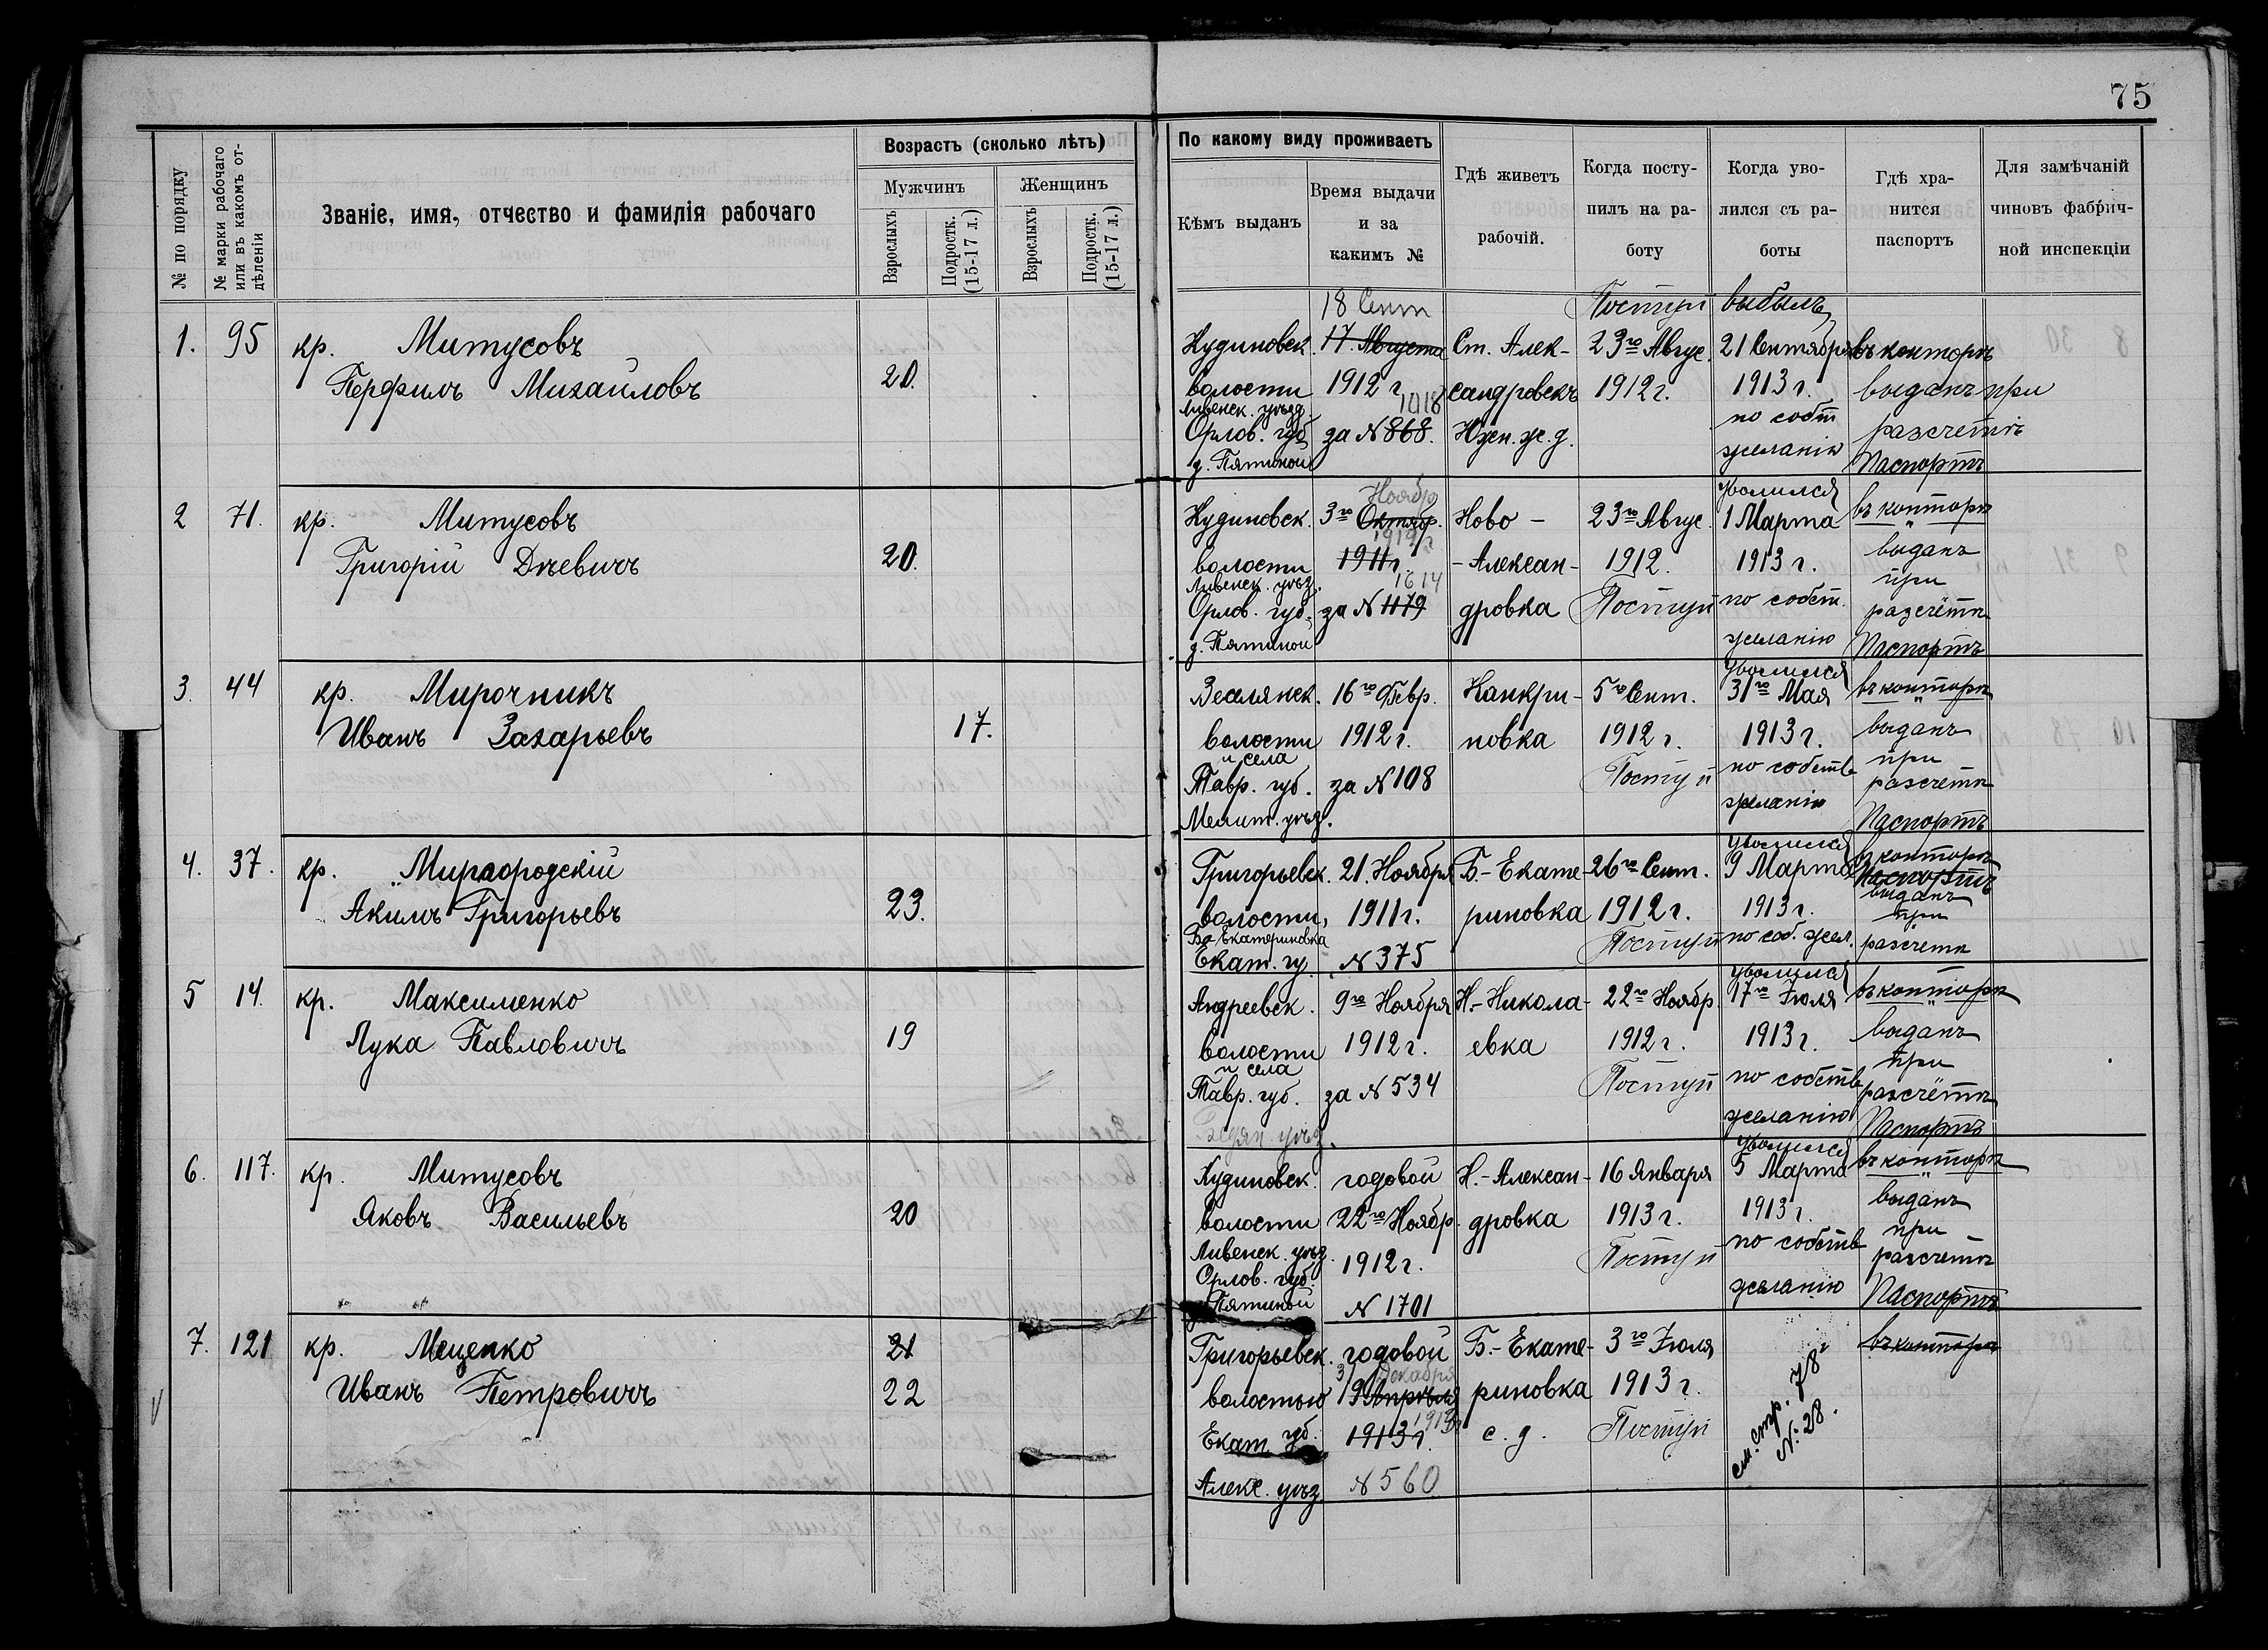 75
№ по порядку
№ марки рабочаго или въ какомъ отдѣленіи
Званіе, имя, отчество и фамилія рабочаго
Возрастъ (сколько лѣтъ)
Мужчинъ
Женщинъ
Взрослыхъ
Подростк. (15-17 л.)
Взрослыхъ
Подростк. (15-17 л.)
По какому виду проживаетъ
Кѣмъ выданъ
Время выдачи
и за
какимъ №
Гдѣ живетъ
рабочій.
Когда посту-
пилъ на ра-
боту
Когда уво-
лился съ ра-
боты
Гдѣ хра-
нится
паспортъ
Для замѣчаній
чиновъ фабрич-
ной инспекціи
1. 95 кр. Митусовъ
Перфилъ Михайловъ 20.
Кудиновск.
волости
Ливенск. уѣзд.
Орлов. губ
д. Пятиной
18 Сент
17. Августа
1912 г
1018
за № 868.
Ст. Алек-
сандровскъ
Южн. ж. д.
Поступ
23го Авгус.
1912 г.
выбылъ
21 Сентября
1913 г.
по собст
желанію
въ конторѣ
выданъ при
разсчетѣ
Паспортъ
2 71. кр. Митусовъ
Григорій Дѣевичъ 20.
Кудиновск.
волости
Ливенск. уѣз.
Орлов. губ.
д. Пятиной
Ноябр
3го Октябр.
1912 г
1911 г.
1614
за № 1179
Ново -
- Алексан-
дровка
23го Авгус.
1912.
Поступ
уволился
1 Марта
1913 г.
по собст.
желанію
въ конторѣ
выданъ
при
разсчётѣ
Паспортъ
3. 44 кр. Мирочникъ
Иванъ Захарьевъ 17.
Веселянск.
волости
и села
Тавр. губ.
Мелит. уѣз.
16го Февр.
1912 г.
за № 108
Канкри-
новка
5го Сент.
1912 г.
Поступ
уволился
31го Мая
1913 г.
по собств
желанію
въ конторѣ
выданъ
при
разсчётѣ
Паспортъ
4. 37. кр. Миргородскій
Акимъ Григорьевъ 23.
Григорьевск.
волости,
Бо-Екатериновка
Екат. гу.
21. Ноября
1911 г.
№ 375
Б.-Екате-
риновка
26го Сент.
1912 г.
Поступ
уволился
9 Марта
1913 г.
по соб. жел.
въ конторѣ
Паспортъ
выданъ
при
разсчетѣ
5 14. кр. Максименко
Лука Павловичъ 19
Андреевск.
волости
и села
Тавр. губ.
Бердян. уѣз.
9го Ноября
1912 г.
за № 534
Н.-Никола-
евка
22го Ноябр
1912 г.
Поступ
уволился
17го Іюля
1913 г.
по собств
желанію
въ конторѣ
выданъ
при
разсчётѣ
Паспортъ
6. 117. кр. Митусовъ
Яковъ Васильевъ 20
Кудиновск.
волости
Ливенск. уѣз.
Орлов. губ.
д. Пятиной
годовой
22го Ноябр
1912 г.
№ 1701
Н.-Алексан-
дровка
16 Января
1913 г.
Поступ
уволился
5 Марта
1913 г.
по собств
желанію
въ конторѣ
выданъ
при
разсчетѣ
Паспортъ
7. 121 кр. Меценко
Иванъ Петровичъ
21
22
Григорьевск.
волостью
Екат губ.
Алекс. уѣз.
годовой
31 Декабря
19 Апрѣля
1913
1913 г.
№ 560
Б.-Екате-
риновка
с. д.
3го Іюля
1913 г.
Поступ
см. стр. 78
№ 28.
въ конторѣ